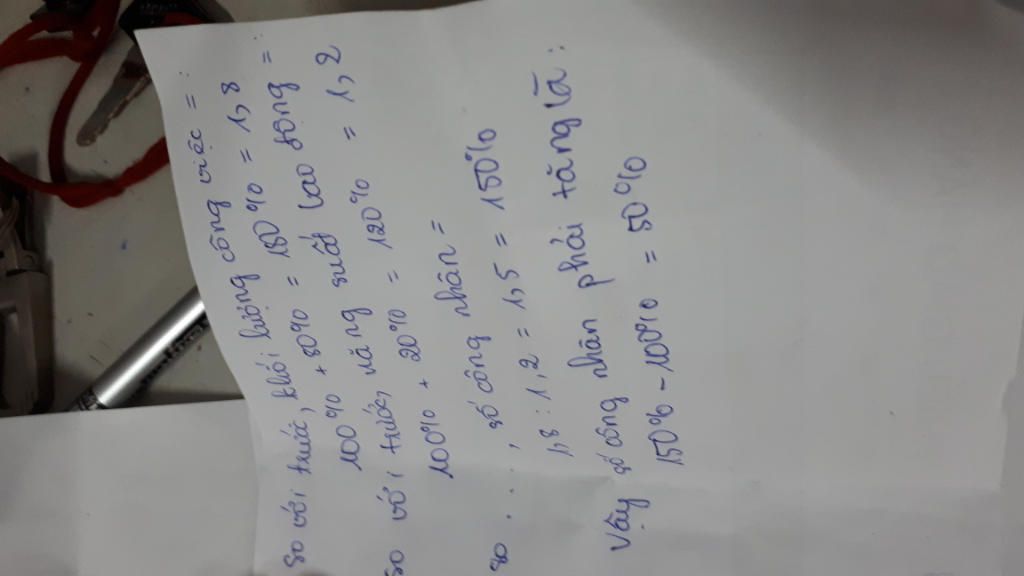 so với trước, khối lượng công việc =
100% + 80% = 180% = 1,8
so với trước, năng suất lao động =
100% + 20% = 120% = 1,2
so ...., số công nhân =
1,8 : 1,2 = 1,5 = 150%
Vậy số công nhân phải tăng là :
150% - 100% = 50%